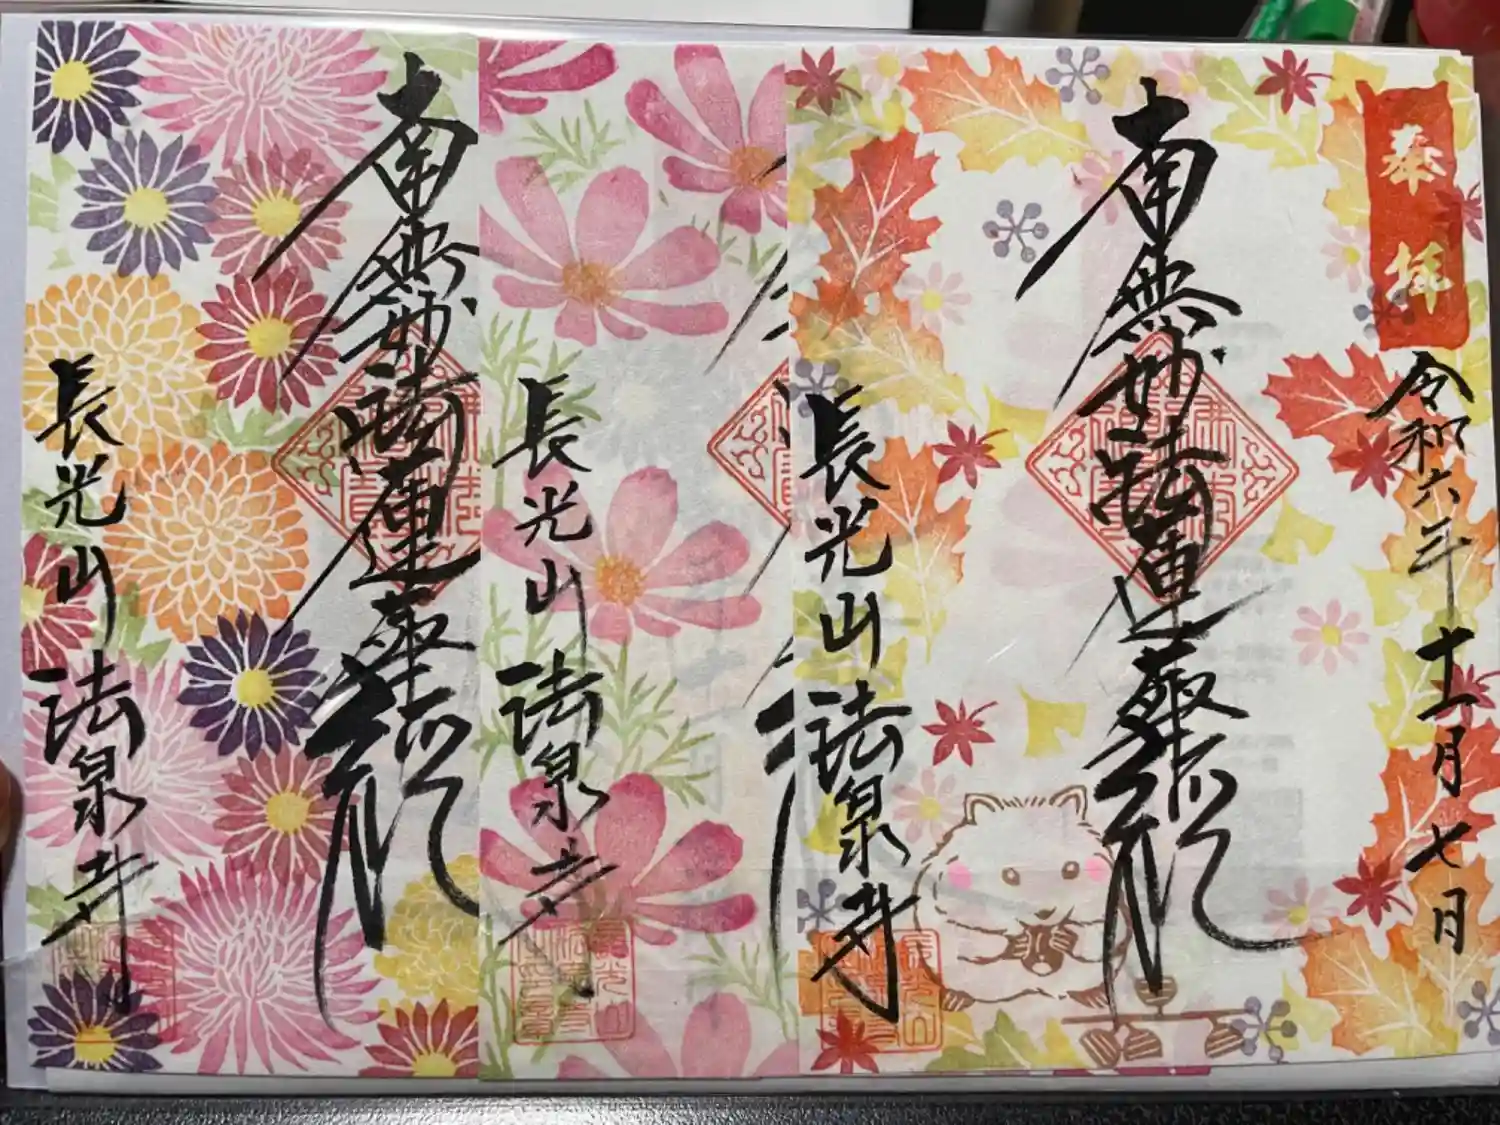 奉拝
令和六年十一月七日
南無妙法蓮華経
長光山 法泉寺
長光山 法泉寺
南無妙法蓮華経
長光山 法泉寺